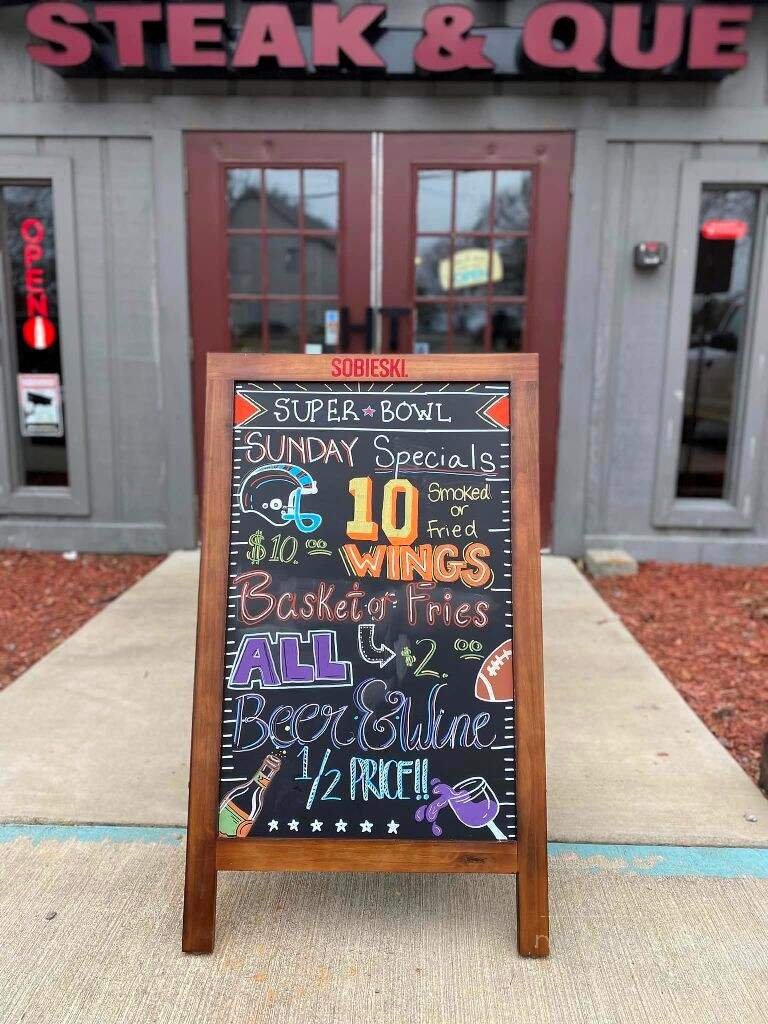 STEAK & QUE
OPEN
HT
SOBIESKI.
SUPER BOWL
SUNDAY Specials
10 Smoked
or
Fried
$10.00 WINGS
Basket of Fries
ALL $2.00
Beer & Wine
1/2 PRICE!!